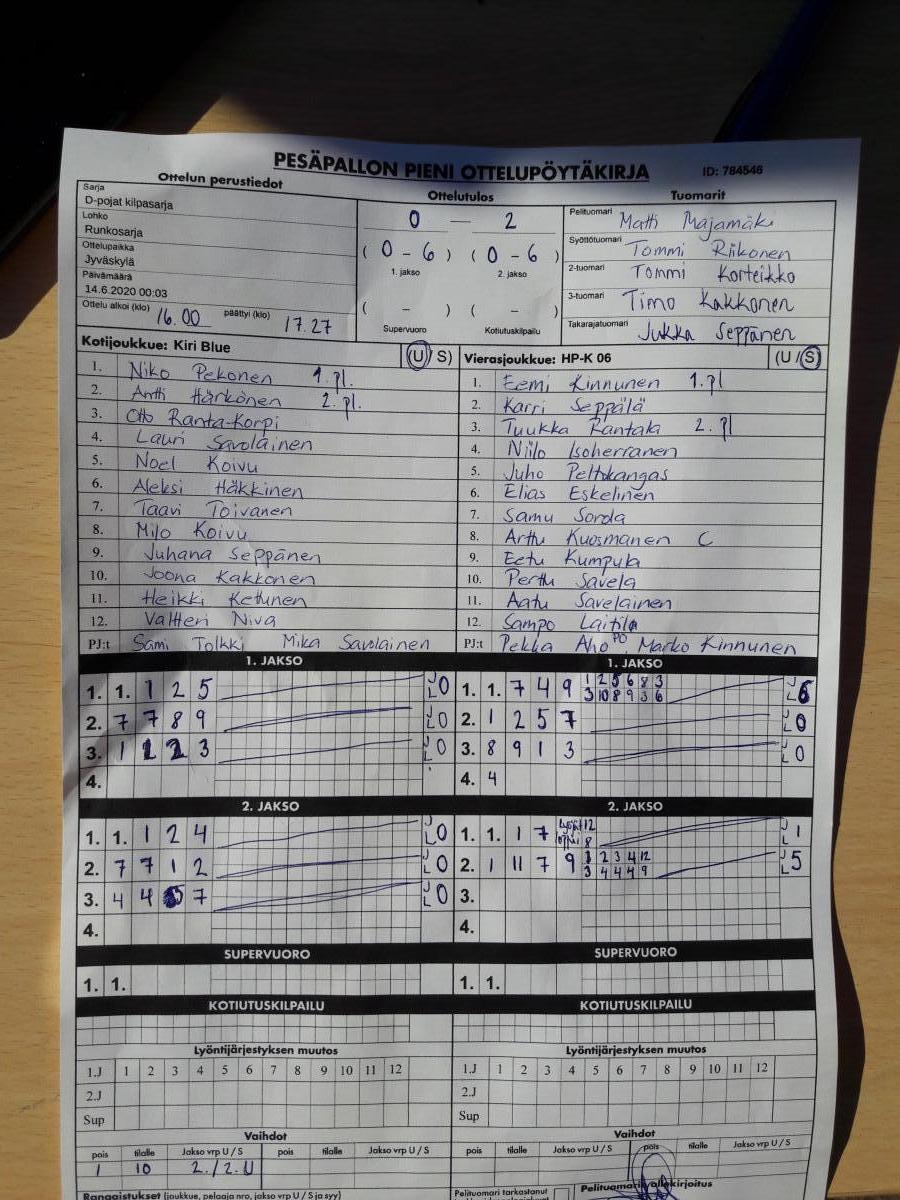 PESÄPALLON PIENI OTTELUPÖYTÄKIRJA ID: 784546
Ottelun perustiedot
Sarja
D-pojat kilpasarja
Lohko
Runkosarja
Ottelupaikka
Jyväskylä
Päivämäärä
14.6.2020 00:03
Ottelu alkoi (klo) 16.00 päättyi (klo) 17.27
Ottelutulos
0 — 2
( 0 - 6 ) ( 0 - 6 )
1. jakso 2. jakso
( - ) ( - )
Supervuoro Kotiutuskilpailu
Tuomarit
Pelituomari Matti Majamäki
Syöttötuomari Tommi Riikonen
2-tuomari Tommi Korteikko
3-tuomari Timo Kakkonen
Takarajatuomari Jukka Seppänen
Kotijoukkue: Kiri Blue (U/ S)
1. Niko Pekonen 1.pl.
2. Antti Härkönen 2.pl.
3. Otto Ranta-Korpi
4. Lauri Savolainen
5. Noel Koivu
6. Aleksi Häkkinen
7. Taavi Toivanen
8. Milo Koivu
9. Juhana Seppänen
10. Joona Kakkonen
11. Heikki Ketunen
12. Valtteri Niva
PJ:t Sami Tolkki Mika Savolainen
Vierasjoukkue: HP-K 06 (U / S)
1. Eemi Kinnunen 1.pl
2. Karri Seppälä
3. Tuukka Rantala 2.pl
4. Niilo Isoherranen
5. Juho Peltokangas
6. Elias Eskelinen
7. Samu Sorola
8. Arttu Kuosmanen C
9. Eetu Kumpula
10. Perttu Savela
11. Aatu Savelainen
12. Sampo Laitila
PJ:t Pekka Aho PO, Marko Kinnunen
1. JAKSO
1. 1. 1 2 5 J L 0
2. 7 7 8 9 J L 0
3. 1 1 2 3 J L 0
4.
1. JAKSO
1. 1. 7 4 9 1 2 5 6 8 3 J L 6
3 10 8 9 3 6
2. 1 2 5 7 J L 0
3. 8 9 1 3 J L 0
4. 4
2. JAKSO
1. 1. 1 2 4 J L 0
2. 7 7 1 2 J L 0
3. 4 4 5 7 J L 0
4.
2. JAKSO
1. 1. 1 7 12 J L 1
8
2. 1 11 7 9 1 2 3 4 12 J L 5
3 4 4 4 9
3.
4.
SUPERVUORO
1. 1.
SUPERVUORO
1. 1.
KOTIUTUSKILPAILU
KOTIUTUSKILPAILU
Lyöntijärjestyksen muutos
1.J 1 2 3 4 5 6 7 8 9 10 11 12
2.J
Sup
Lyöntijärjestyksen muutos
1.J 1 2 3 4 5 6 7 8 9 10 11 12
2.J
Sup
Vaihdot
pois tilalle Jakso vrp U / S pois tilalle Jakso vrp U / S
1 10 2./2.U
Vaihdot
pois tilalle Jakso vrp U / S pois tilalle Jakso vrp U / S
Rangaistukset (joukkue, pelaaja nro, jakso vrp U / S ja syy)
Pelituomari tarkastanut
Pelituomarin allekirjoitus